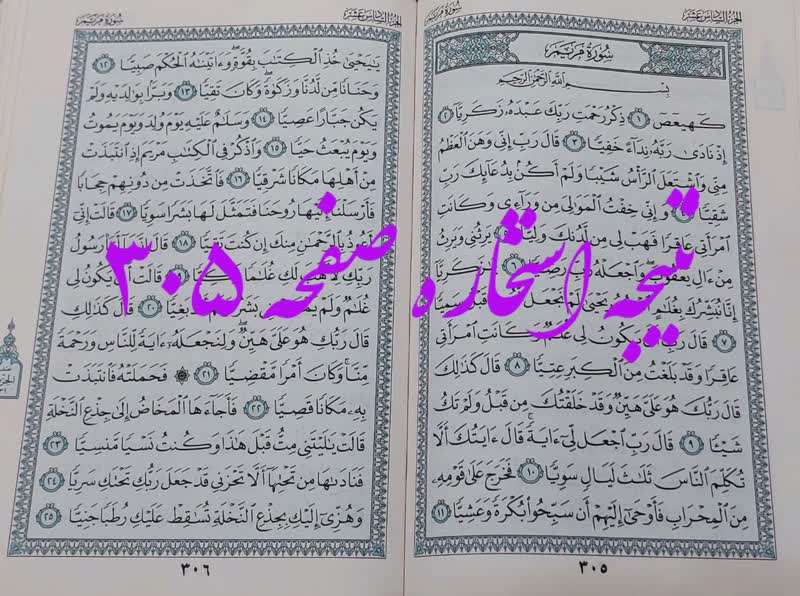 سُورَةُ مَرْيَمَ
الجُزْءُ السَّادِسَ عَشَرَ
سُورَةُ مَرْيَمَ
بِسْمِ ٱللَّهِ ٱلرَّحْمَٰنِ ٱلرَّحِيمِ
كٓهيعٓصٓ ١ ذِكْرُ رَحْمَتِ رَبِّكَ عَبْدَهُۥ زَكَرِيَّآ ٢
إِذْ نَادَىٰ رَبَّهُۥ نِدَآءً خَفِيًّا ٣ قَالَ رَبِّ إِنِّى وَهَنَ ٱلْعَظْمُ
مِنِّى وَٱشْتَعَلَ ٱلرَّأْسُ شَيْبًا وَلَمْ أَكُنۢ بِدُعَآئِكَ رَبِّ
شَقِيًّا ٤ وَإِنِّى خِفْتُ ٱلْمَوَٰلِىَ مِن وَرَآءِى وَكَانَتِ
ٱمْرَأَتِى عَاقِرًا فَهَبْ لِى مِن لَّدُنكَ وَلِيًّا ٥ يَرِثُنِى وَيَرِثُ
مِنْ ءَالِ يَعْقُوبَ وَٱجْعَلْهُ رَبِّ رَضِيًّا ٦ يَٰزَكَرِيَّآ
إِنَّا نُبَشِّرُكَ بِغُلَٰمٍ ٱسْمُهُۥ يَحْيَىٰ لَمْ نَجْعَل لَّهُۥ مِن قَبْلُ سَمِيًّا
٧ قَالَ رَبِّ أَنَّىٰ يَكُونُ لِى غُلَٰمٌ وَكَانَتِ ٱمْرَأَتِى
عَاقِرًا وَقَدْ بَلَغْتُ مِنَ ٱلْكِبَرِ عِتِيًّا ٨ قَالَ كَذَٰلِكَ
قَالَ رَبُّكَ هُوَ عَلَىَّ هَيِّنٌ وَقَدْ خَلَقْتُكَ مِن قَبْلُ وَلَمْ تَكُ
شَيْـًٔا ٩ قَالَ رَبِّ ٱجْعَل لِّىٓ ءَايَةً قَالَ ءَايَتُكَ أَلَّا
تُكَلِّمَ ٱلنَّاسَ ثَلَٰثَ لَيَالٍ سَوِيًّا ١٠ فَخَرَجَ عَلَىٰ قَوْمِهِۦ
مِنَ ٱلْمِحْرَابِ فَأَوْحَىٰٓ إِلَيْهِمْ أَن سَبِّحُوا۟ بُكْرَةً وَعَشِيًّا ١١
٣٠٥
الجُزْءُ السَّادِسَ عَشَرَ
سُورَةُ مَرْيَمَ
يَٰيَحْيَىٰ خُذِ ٱلْكِتَٰبَ بِقُوَّةٍ وَءَاتَيْنَٰهُ ٱلْحُكْمَ صَبِيًّا ١٢
وَحَنَانًا مِّن لَّدُنَّا وَزَكَوٰةً وَكَانَ تَقِيًّا ١٣ وَبَرًّۢا بِوَٰلِدَيْهِ وَلَمْ
يَكُن جَبَّارًا عَصِيًّا ١٤ وَسَلَٰمٌ عَلَيْهِ يَوْمَ وُلِدَ وَيَوْمَ يَمُوتُ
وَيَوْمَ يُبْعَثُ حَيًّا ١٥ وَٱذْكُرْ فِى ٱلْكِتَٰبِ مَرْيَمَ إِذِ ٱنتَبَذَتْ
مِنْ أَهْلِهَا مَكَانًا شَرْقِيًّا ١٦ فَٱتَّخَذَتْ مِن دُونِهِمْ حِجَابًا
فَأَرْسَلْنَآ إِلَيْهَا رُوحَنَا فَتَمَثَّلَ لَهَا بَشَرًا سَوِيًّا ١٧ قَالَتْ إِنِّىٓ
أَعُوذُ بِٱلرَّحْمَٰنِ مِنكَ إِن كُنتَ تَقِيًّا ١٨ قَالَ إِنَّمَآ أَنَا۠ رَسُولُ
رَبِّكِ لِأَهَبَ لَكِ غُلَٰمًا زَكِيًّا ١٩ قَالَتْ أَنَّىٰ يَكُونُ لِى
غُلَٰمٌ وَلَمْ يَمْسَسْنِى بَشَرٌ وَلَمْ أَكُ بَغِيًّا ٢٠ قَالَ كَذَٰلِكِ
قَالَ رَبُّكِ هُوَ عَلَىَّ هَيِّنٌ وَلِنَجْعَلَهُۥٓ ءَايَةً لِّلنَّاسِ وَرَحْمَةً
مِّنَّا وَكَانَ أَمْرًا مَّقْضِيًّا ٢١ ۞ فَحَمَلَتْهُ فَٱنتَبَذَتْ
بِهِۦ مَكَانًا قَصِيًّا ٢٢ فَأَجَآءَهَا ٱلْمَخَاضُ إِلَىٰ جِذْعِ ٱلنَّخْلَةِ
قَالَتْ يَٰلَيْتَنِى مِتُّ قَبْلَ هَٰذَا وَكُنتُ نَسْيًا مَّنسِيًّا ٢٣
فَنَادَىٰهَا مِن تَحْتِهَآ أَلَّا تَحْزَنِى قَدْ جَعَلَ رَبُّكِ تَحْتَكِ سَرِيًّا ٢٤
وَهُزِّىٓ إِلَيْكِ بِجِذْعِ ٱلنَّخْلَةِ تُسَٰقِطْ عَلَيْكِ رُطَبًا جَنِيًّا ٢٥
٣٠٦
نتیجه استخاره صفحه ۳۰۵